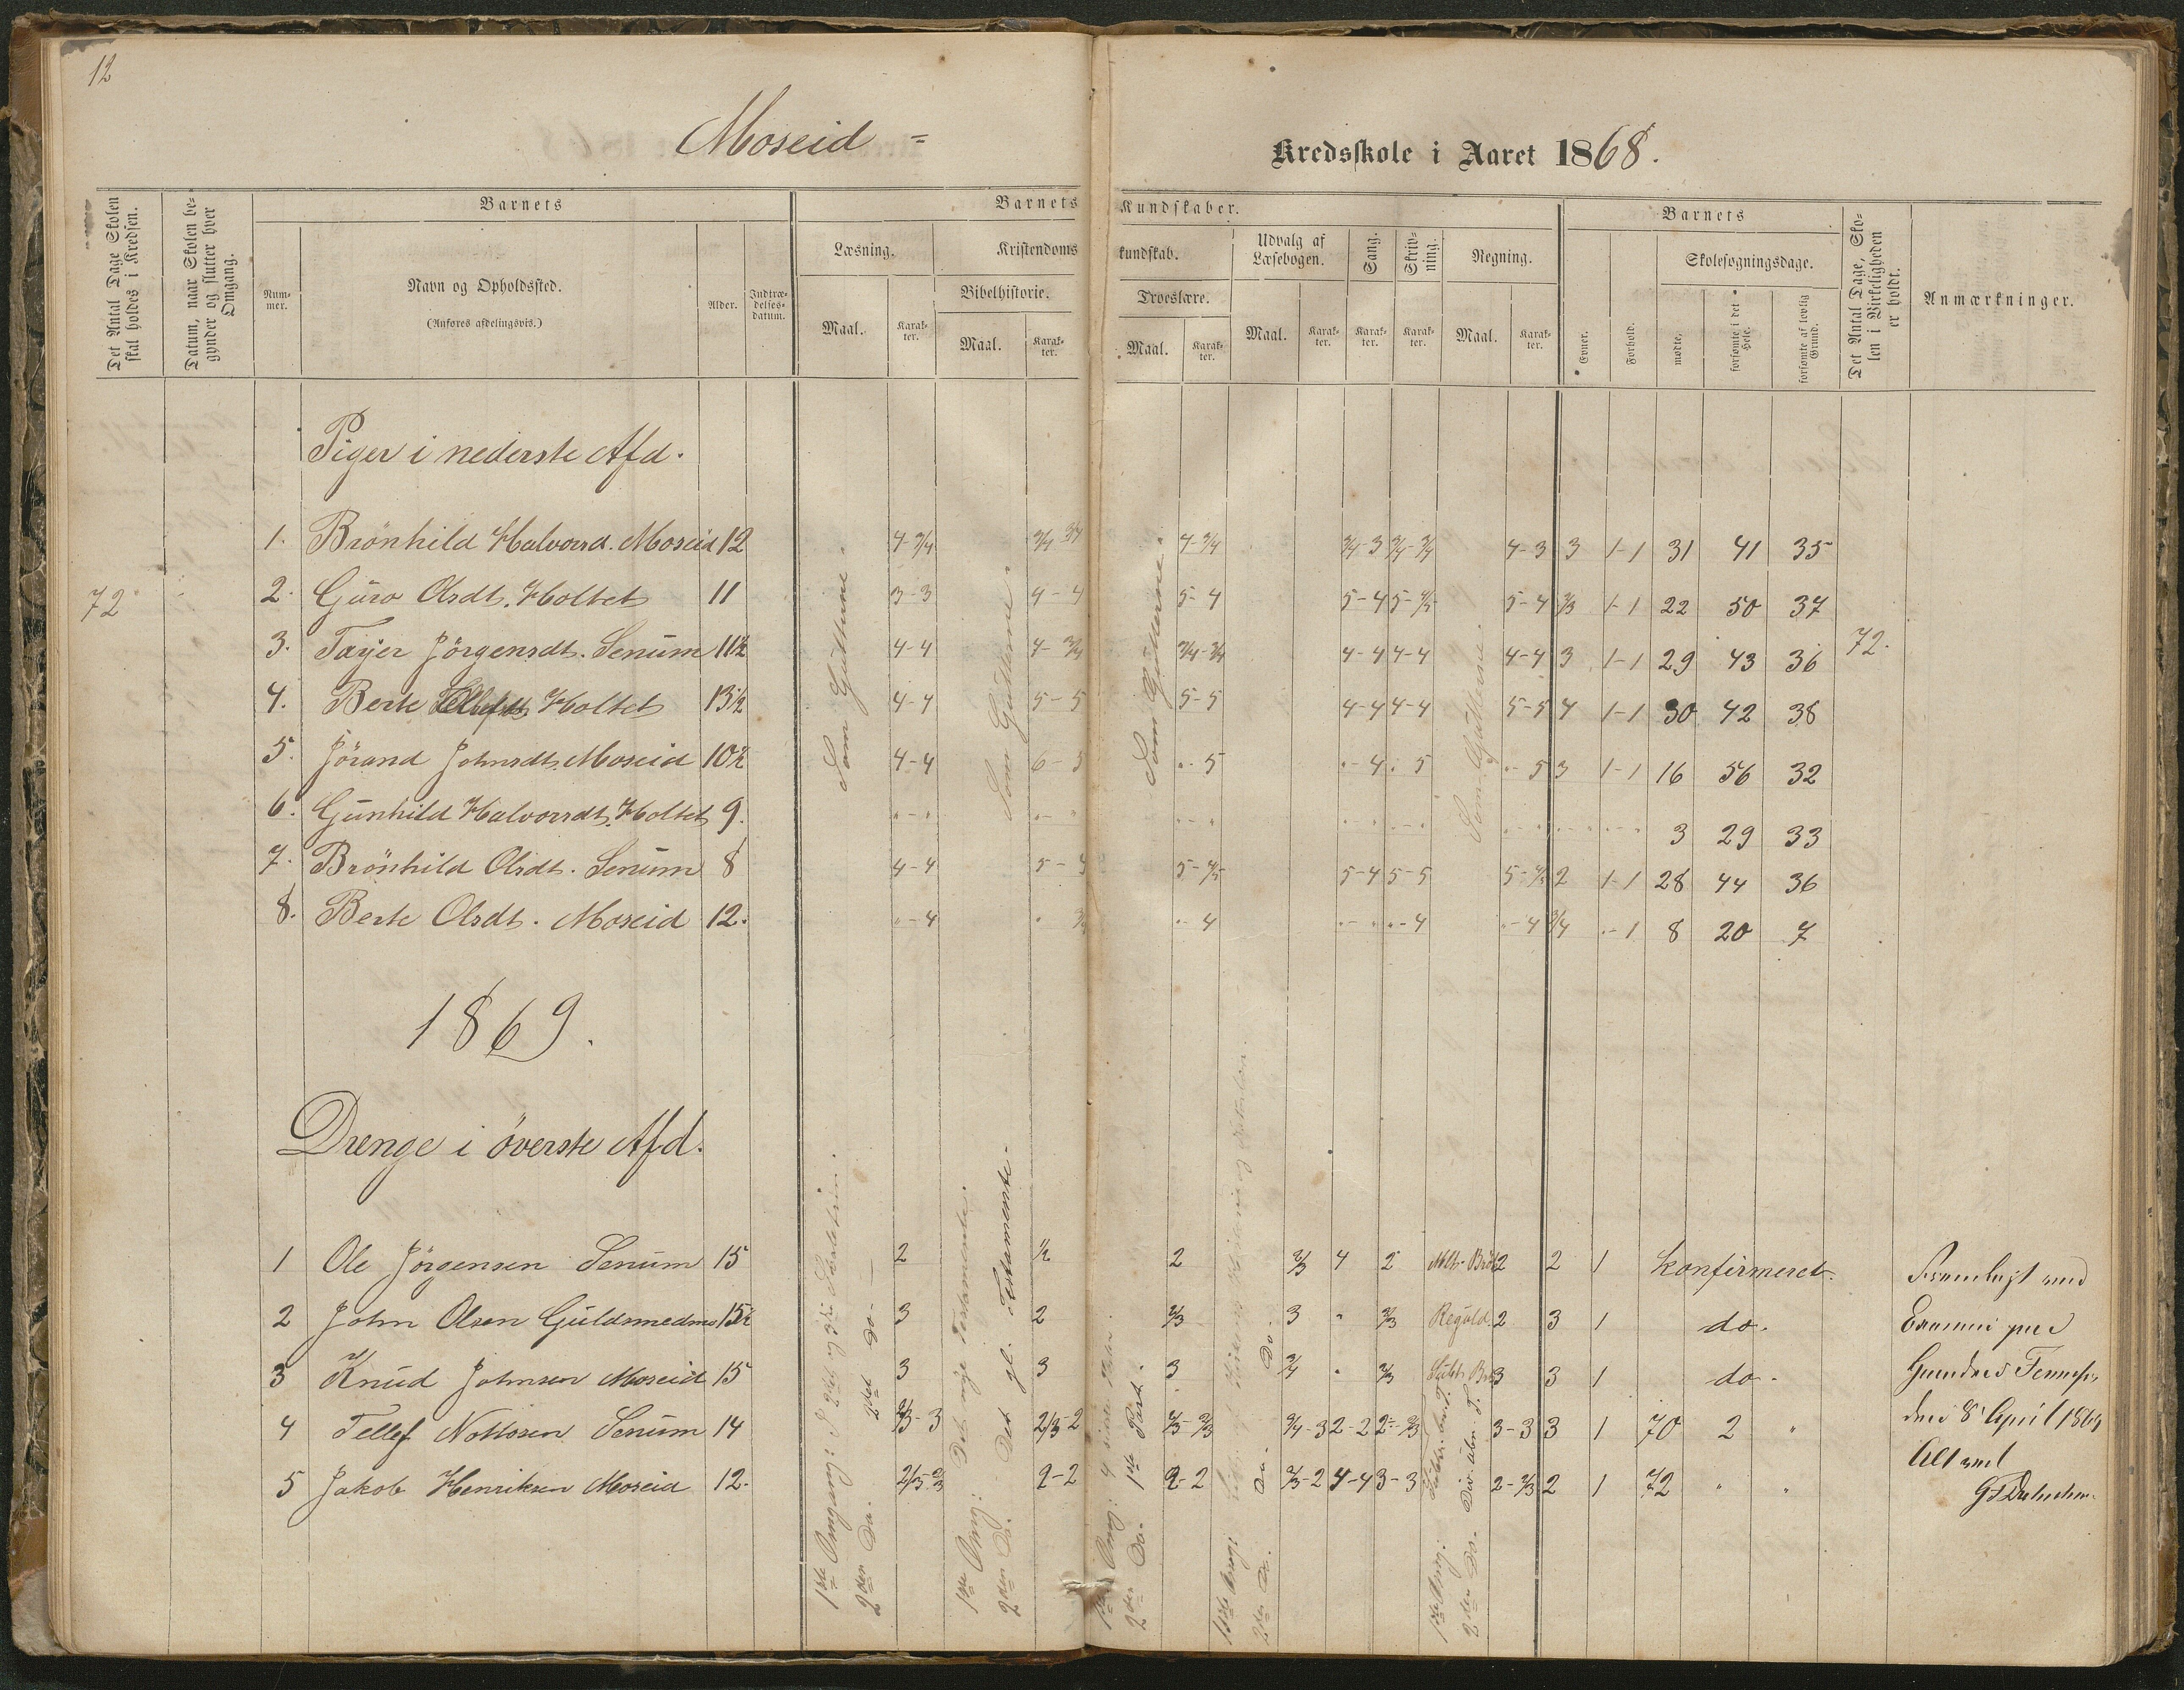 12
Moseid - Kredsskole i Aaret 1868.
Det Antal Dage Skolen skal holdes i Kredsen.
Datum, naar Skolen begynder og slutter hver Omgang.
Barnets
Nummer.
Navn og Opholdssted.
(Anføres afdelingsvis.)
Alder.
Indtrædelsesdatum.
Barnets Kundskaber.
Læsning.
Maal.
Karakter.
Kristendomskundskab.
Bibelhistorie.
Maal.
Karakter.
Troeslære.
Maal.
Karakter.
Udvalg af Læsebogen.
Maal.
Karakter.
Sang.
Karakter.
Skrivning.
Karakter.
Regning.
Maal.
Karakter.
Barnets
Evner.
Forhold.
Skolesøgningsdage.
mødte.
forsømte i det Hele.
forsømte af lovlig Grund.
Det Antal Dage, Skolen i Virkeligheden er holdt.
Anmærkninger.
Piger i nederste Afd.
72
Som Gutterne.
Som Gutterne.
Som Gutterne.
Som Gutterne.
72.
1. Brönhild Halvorsd. Moseid 12 4-3/4 3/4 3/4 4-3/4 3/4-3 3/4-3/4 4-3 3 1-1 31 41 35
2. Guro Olsdt. Holtet 11 3-3 4-4 5-4 5-4 5-4/5 5-4 2/3 1-1 22 50 37
3. Tarjer Jörgensdt. Senum 11½ 4-4 4-3/4 3/4-3/4 4-4 4-4 4-4 3 1-1 29 43 36
4. Berte Tellefsdt Holtet 13½ 4-4 5-5 5-5 4-4 4-4 5-5 4 1-1 30 42 38
5. Jörand Johnsdt. Moseid 10½ 4-4 6-5 "-5 "-4 "-5 "-5 3 1-1 16 56 32
6. Gunhild Halvorsdt. Holtet 9. "-" "-" "-" "-" "-" "-" 3 29 33
7. Brönhild Olsdt. Senum 8 4-4 5-4 5-4/5 5-4 5-5 5-4/5 2 1-1 28 44 36
8. Berte Olsdt. Moseid 12. "-4 "-4 "-" "-4 "-4 3/4 "-1 8 20 7
1869.
Drenge i överste Afd.
1 Ole Jörgensen Senum 15 2 1/2 2 2/3 4 2 2 2 1 Konfirmeret.
2 John Olsen Guldsmedmo 15½ 3 2 2/3 3 " 2/3 Reguld. 2 3 1 do.
3 Knud Johnsen Moseid 15 3 3 3 3/4 " 2/3 3 3 1 do.
4 Tellef Nottosen Senum 14 2/3-3 2/3-2 2/3-2/3 3/4-3 2-2 2-2/3 3-3 3 1 70 2 "
5 Jakob Henriksen Moseid 12. 2/3-2/3 2-2 2-2 2/3-2 4-4 3-3 2-2/3 2 1 72 " "
1ste Omgang:
2den Do. 2det Do.
1ste Omg: Det nye Testamente.
2den Do. Det gl. Testamente.
1ste Omg: 4 sidste
2den Do. 1ste Part.
1ste Omg:
2den Do. Do. Do.
1ste Omg:
2den Do.
Fremlagt ved
Examen paa
den 8 April 1869